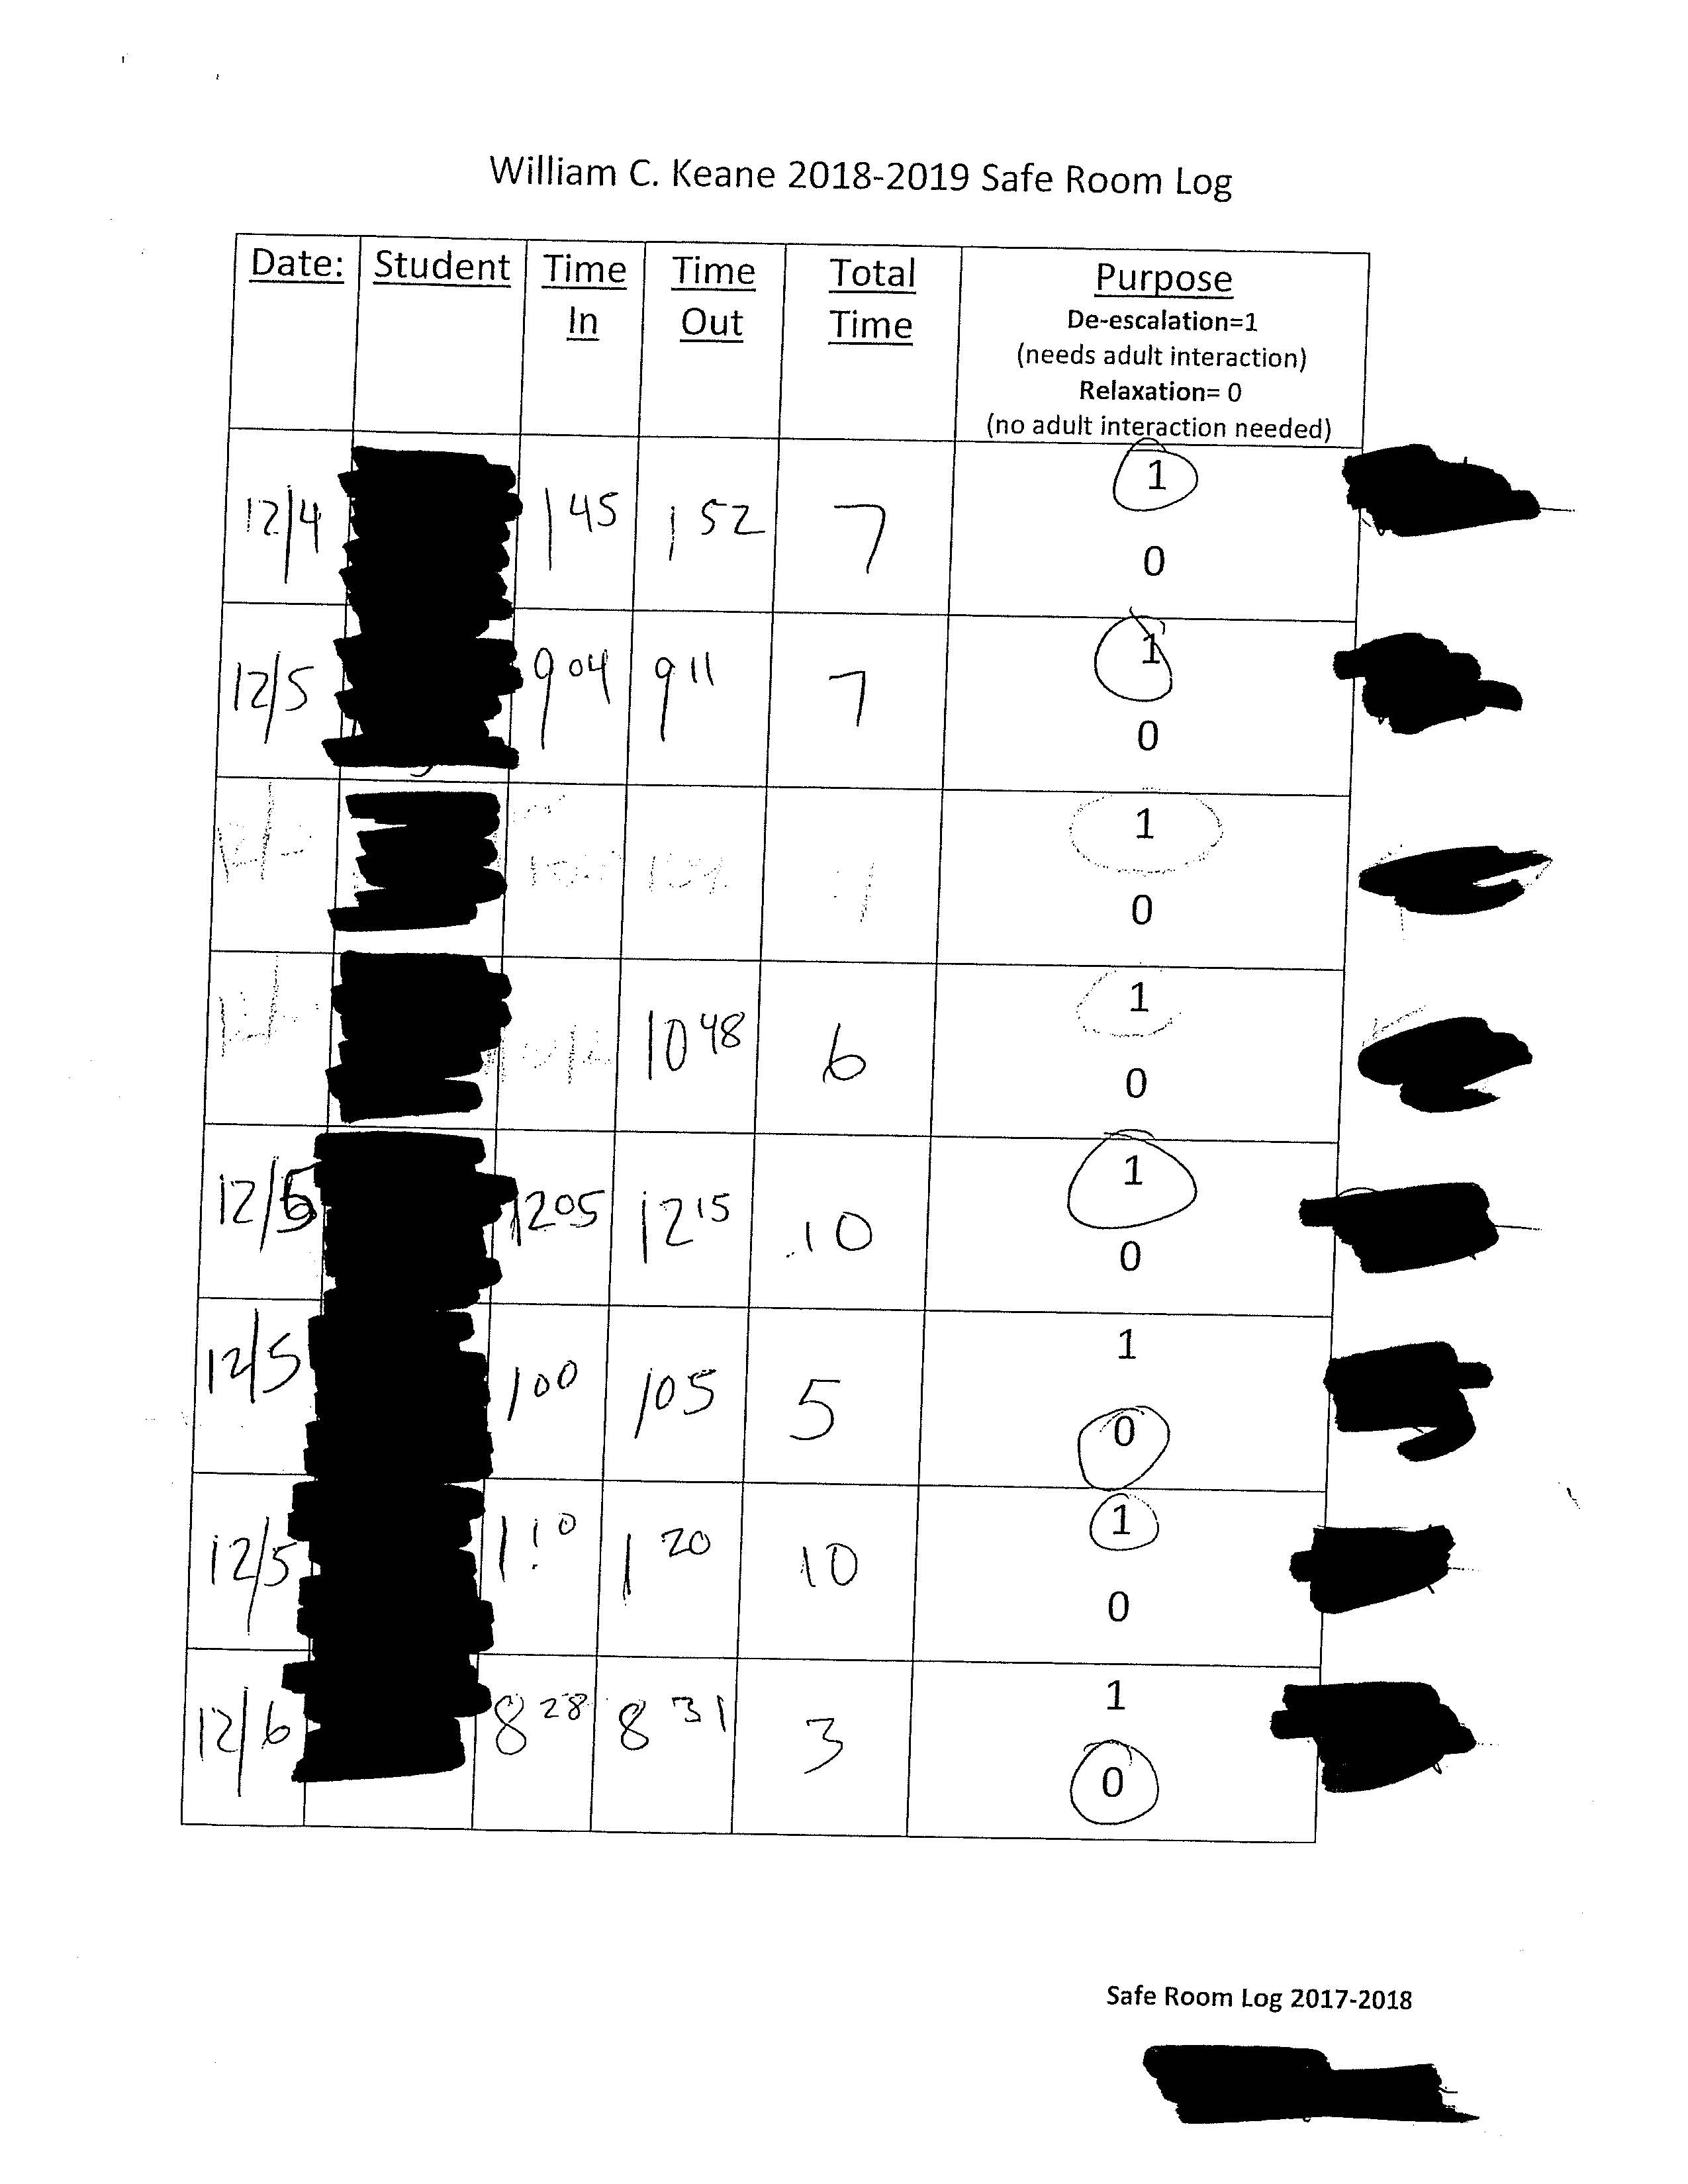 William C. Keane 2018-2019 Safe Room Log
Date: Student Time In Time Out Total Time Purpose
De-escalation=1
(needs adult interaction)
Relaxation= 0
(no adult interaction needed)
12/4 1 45 1 52 7 1
0
12/5 9 04 9 11 7 1
0
1
0
10 48 6 1
0
12/5 12 05 12 15 10 1
0
12/5 1 00 1 05 5 1
0
12/5 1 10 1 20 10 1
0
12/6 8 28 8 31 3 1
0
Safe Room Log 2017-2018